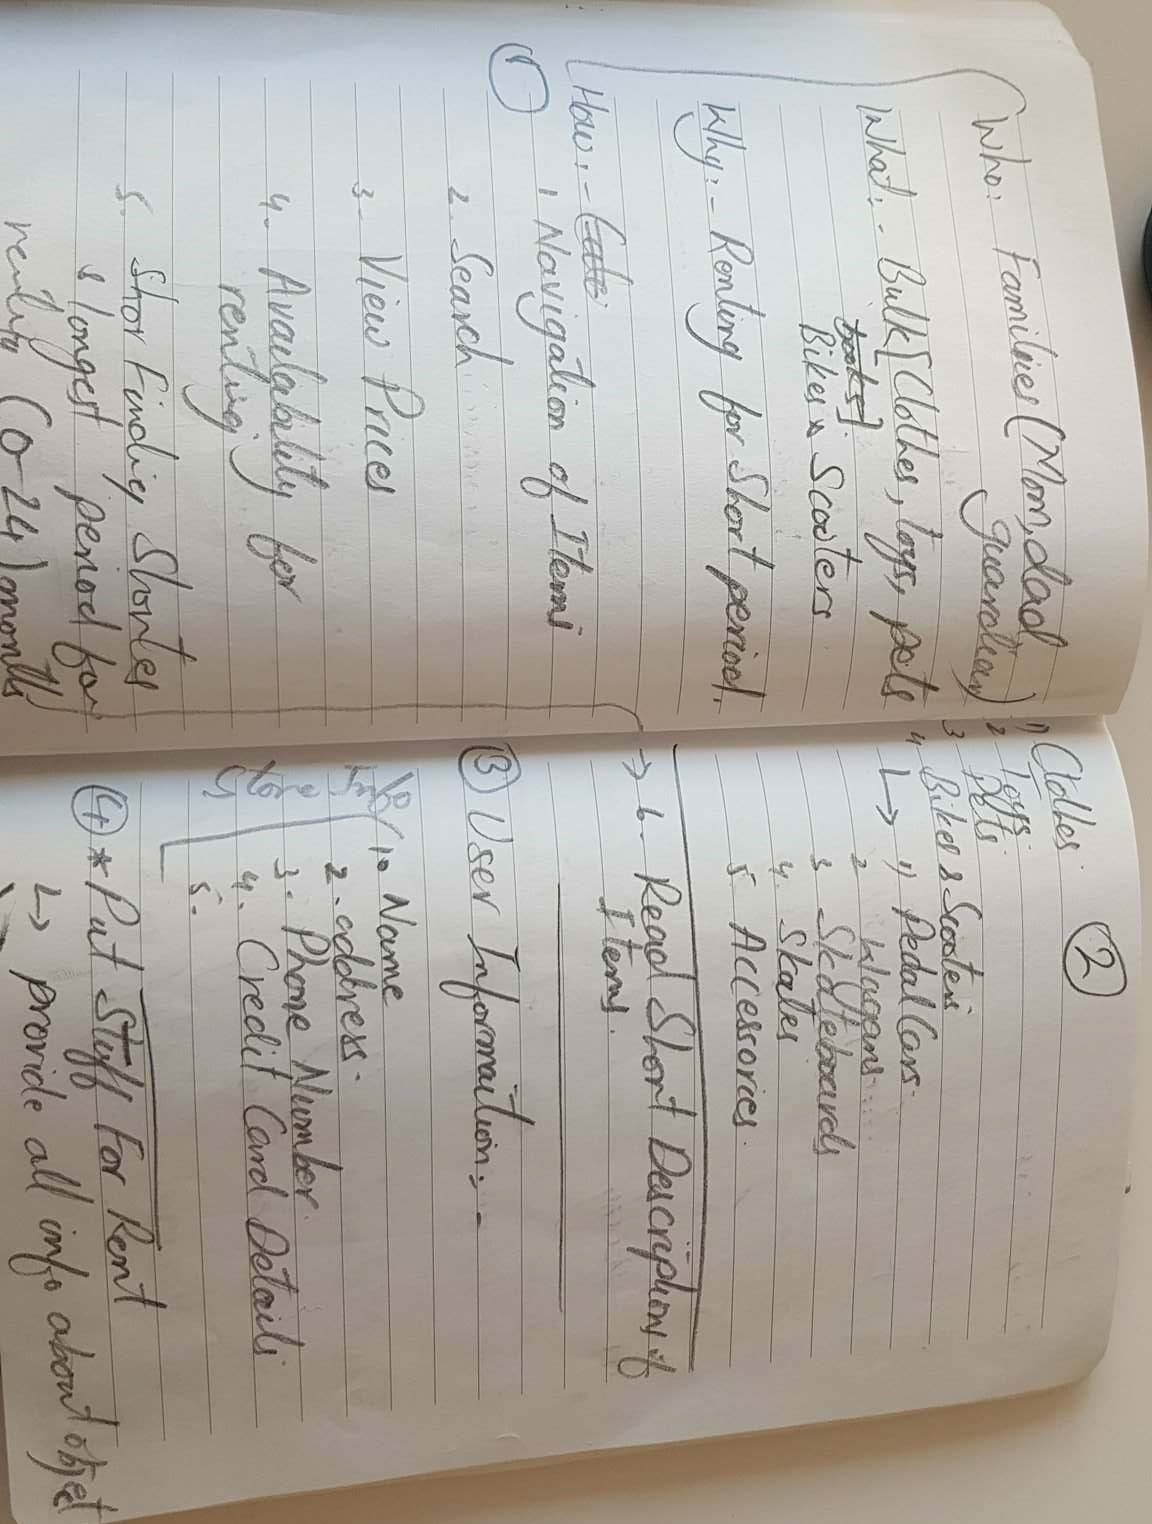 Who: Families (Mom, dad,
guardian)
What:- Bulk [Clothes, toys, pets
books].
Bikes & Scooters
Why:- Renting for Short period.
How:-
1 Navigation of Items
1
2. Search
3- View Prices
4- Availability for
renting
5. Shor Finding Shortes
& longest period for
renting (0-24) months
2
1) Clothes
2 Toys
3 Pets
4 Bikes & Scooters
↳ 1) Pedal Cars.
2 Wagans
3 Skateboards
4. Skates
5 Accessories.
→ 6- Read Short Descriptions of
Items.
3 User Information:-
1. Name
2. address.
3. Phone Number
4. Credit Card Details
5.
4 * Put Stuff For Rent
↳ provide all info about object